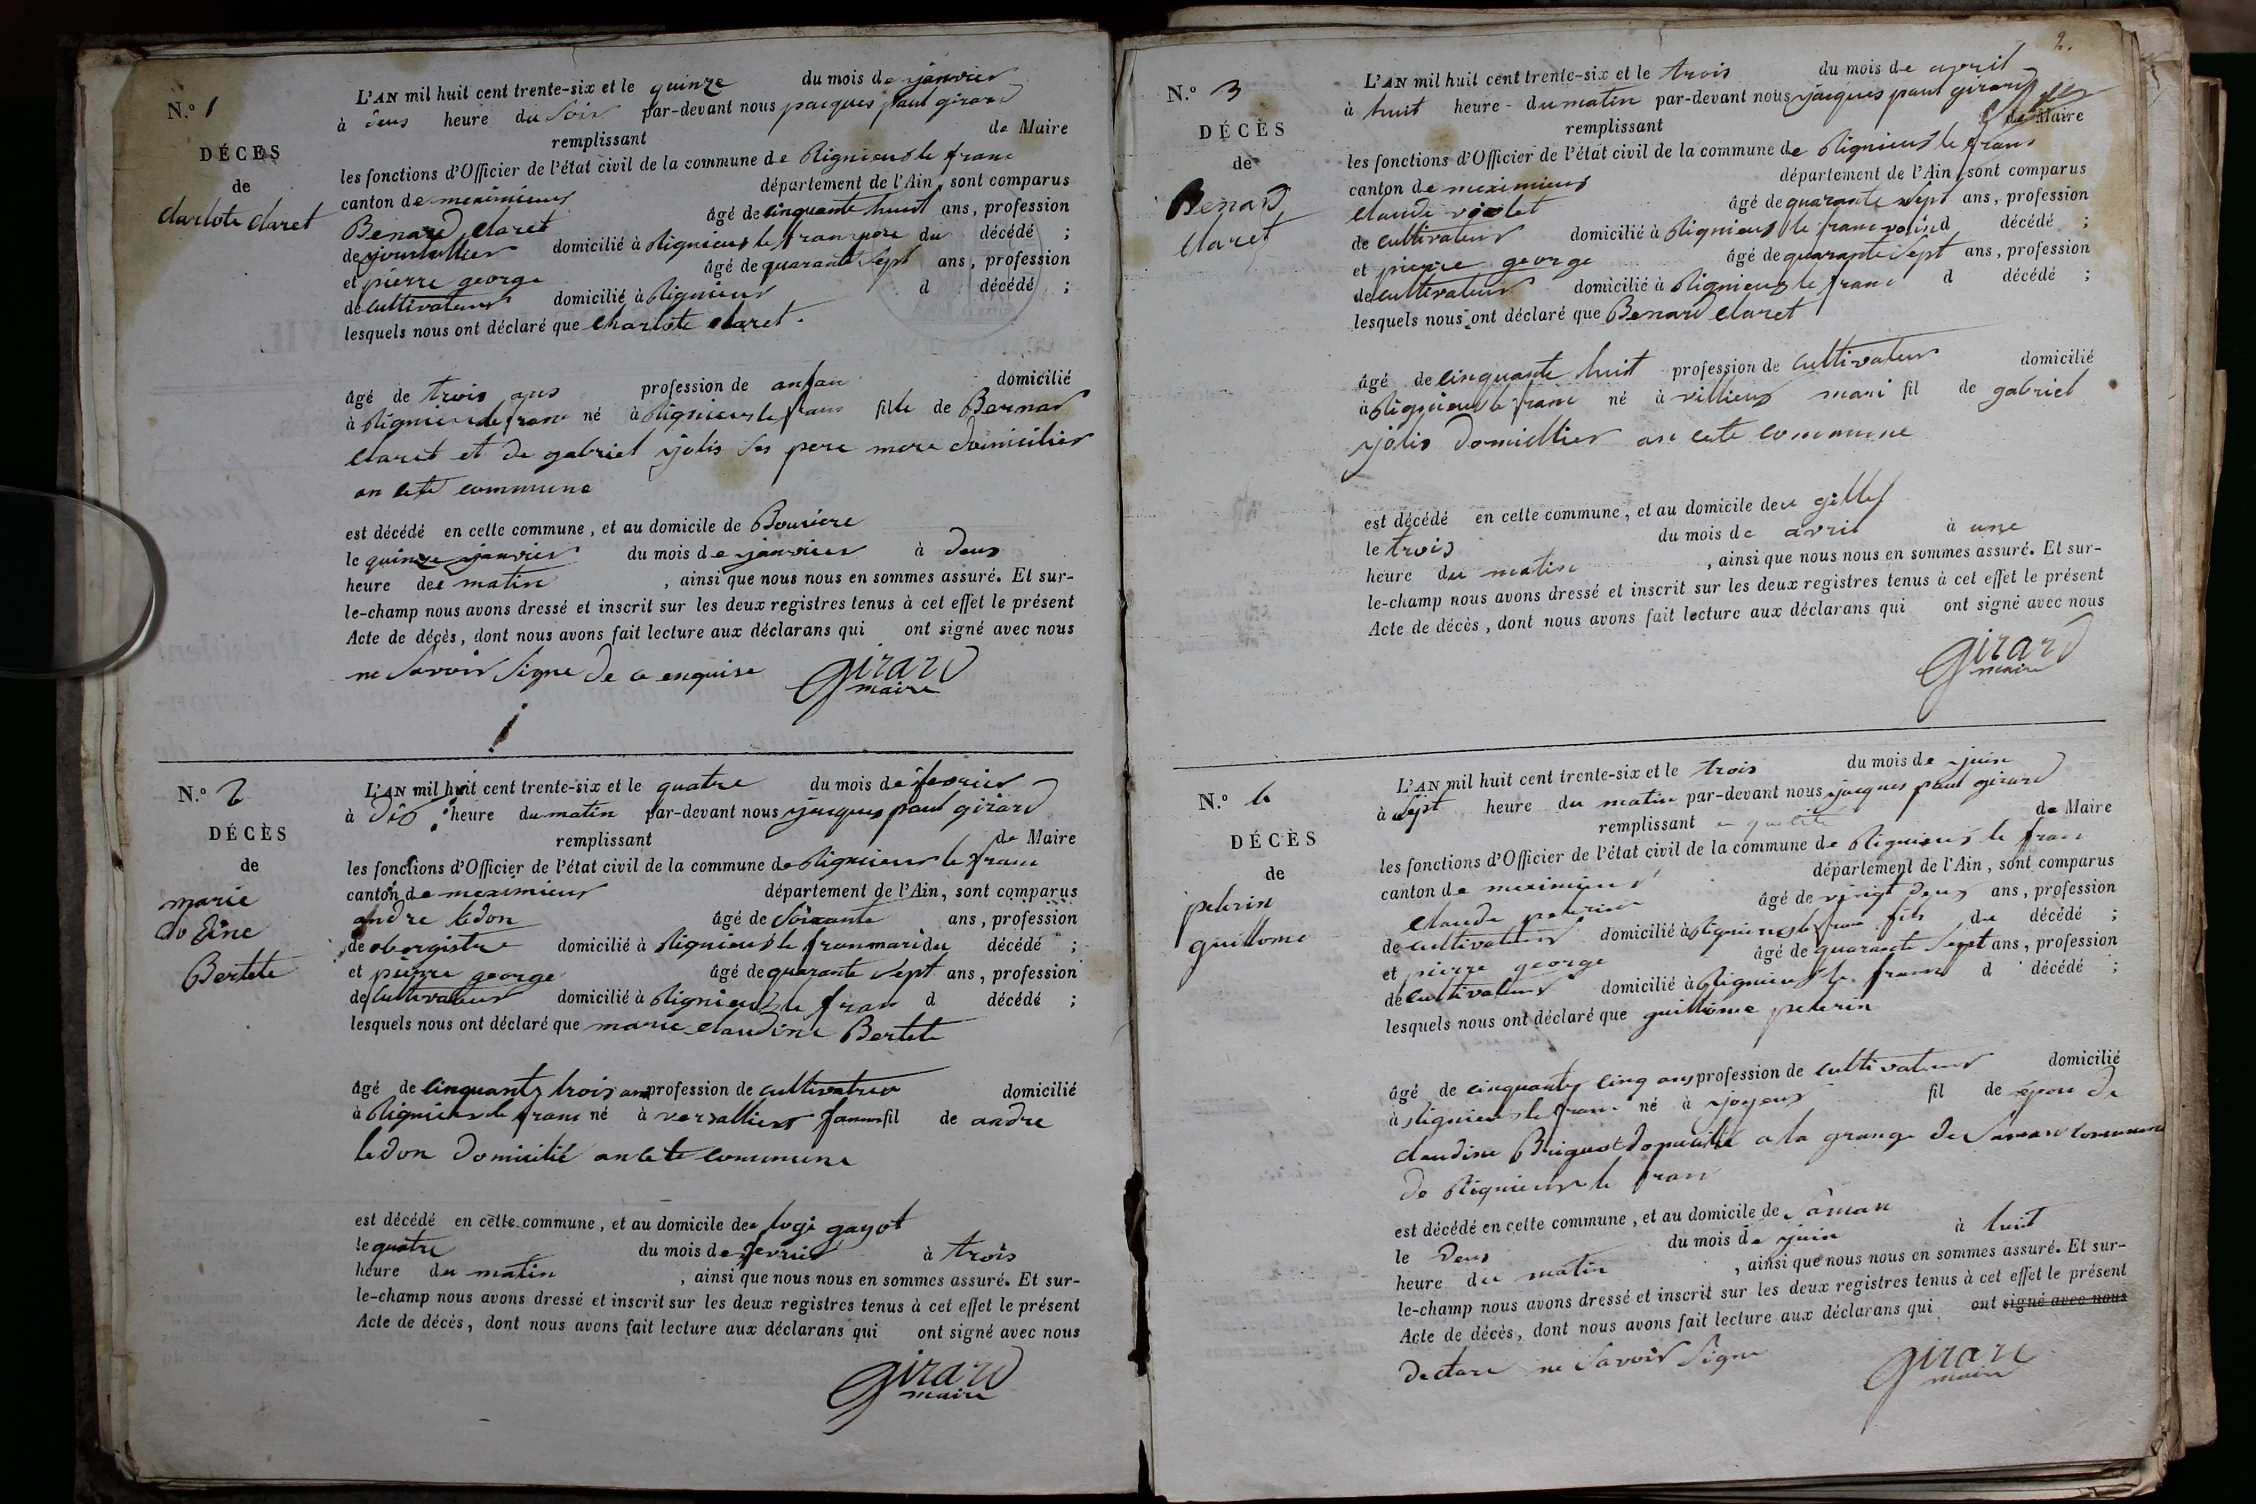 N.º 1
DÉCÈS
de
Charlote Claret
L'AN mil huit cent trente-six et le quinze du mois de janvier
à deus heure du Soir par-devant nous jacques paul girard
remplissant de Maire
les fonctions d'Officier de l'état civil de la commune de Rignieus le franc
canton de meximieus département de l'Ain, sont comparus
Benard Claret âgé de cinquante huit ans, profession
de journallier domicilié à Rignieus le fran pere du décédé ;
et pierre george âgé de quarante Sept ans, profession
de cultivateur domicilié à Rignieus d décédé ;
lesquels nous ont déclaré que Charlote Claret
âgé de trois ans profession de anfan domicilié
à Rignieus le franc né à Rignieus le fran fille de Bernar
Claret et de gabriel jolis Ses pere mere domicilier
an cete commune
est décédé en cette commune, et au domicile de Bouviere
le quinze janvier du mois de janvier à deus
heure de matin , ainsi que nous nous en sommes assuré. Et sur-
le-champ nous avons dressé et inscrit sur les deux registres tenus à cet effet le présent
Acte de décès, dont nous avons fait lecture aux déclarans qui ont signé avec nous
ne Savoir Signe de ce enquise girard
maire
N.º 2
DÉCÈS
de
marie
Bertete
L'AN mil huit cent trente-six et le quatre du mois de fevrier
à dis heure du matin par-devant nous jacques paul girard
remplissant de Maire
les fonctions d'Officier de l'état civil de la commune de Rignieus le franc
canton de meximieus département de l'Ain, sont comparus
andre ledon âgé de Soixante ans, profession
de obergistre domicilié à Rignieus le fran mari du décédé ;
et pierre george âgé de quarante Sept ans, profession
de cultivateur domicilié à Rignieus le fran d décédé ;
lesquels nous ont déclaré que marie claudine Bertete
âgé de cinquante trois ans profession de cultivatrice domicilié
à Rignieus le franc né à versallieus famme fil de andre
ledon domicilié an cete commune
est décédé en cette commune, et au domicile de loge gayot
le quatre du mois de fevrier à trois
heure du matin , ainsi que nous nous en sommes assuré. Et sur-
le-champ nous avons dressé et inscrit sur les deux registres tenus à cet effet le présent
Acte de décès, dont nous avons fait lecture aux déclarans qui ont signé avec nous
girard
maire
2.
N.º 3
DÉCÈS
de
Benard
Claret
L'AN mil huit cent trente-six et le trois du mois de april
à huit heure du matin par-devant nous jacques paul girard
remplissant de Maire
les fonctions d'Officier de l'état civil de la commune de Rignieus le franc
canton de meximieus département de l'Ain, sont comparus
Claude violet âgé de quarante Sept ans, profession
de cultivateur domicilié à Rignieus le franc voisin d décédé ;
et pierre george âgé de quarante Sept ans, profession
de cultivateur domicilié à Rignieus le franc d décédé ;
lesquels nous ont déclaré que Benard Claret
âgé de cinquante huit profession de cultivateur domicilié
à Rignieus le franc né à villieus mari fil de gabriel
jolis domicillier an cete commune
est décédé en cette commune, et au domicile de gilles
le trois du mois de avril à une
heure du matin , ainsi que nous nous en sommes assuré. Et sur-
le-champ nous avons dressé et inscrit sur les deux registres tenus à cet effet le présent
Acte de décès, dont nous avons fait lecture aux déclarans qui ont signé avec nous
girard
maire
N.º 4
DÉCÈS
de
pelerin
guillome
L'AN mil huit cent trente-six et le trois du mois de juin
à Sept heure du matin par-devant nous jacques paul girard
remplissant de Maire
les fonctions d'Officier de l'état civil de la commune de Rignieus le fran
canton de meximieus département de l'Ain, sont comparus
Claude pelerin âgé de vingt deus ans, profession
de cultivateur domicilié à Rignieus le franc fils du décédé ;
et pierre george âgé de quarante Sept ans, profession
de cultivateur domicilié à Rignieus le franc d décédé ;
lesquels nous ont déclaré que guillome pelerin
âgé de cinquante cinq ans profession de cultivateur domicilié
à Rignieus le franc né à joyeus fil de epou de
claudine a la grange de Saman commune
de Rignieus le fran
est décédé en cette commune, et au domicile de Saman
le deus du mois de juin à huit
heure du matin , ainsi que nous nous en sommes assuré. Et sur-
le-champ nous avons dressé et inscrit sur les deux registres tenus à cet effet le présent
Acte de décès, dont nous avons fait lecture aux déclarans qui ont signé avec nous
declare ne Savoir Signe girard
maire